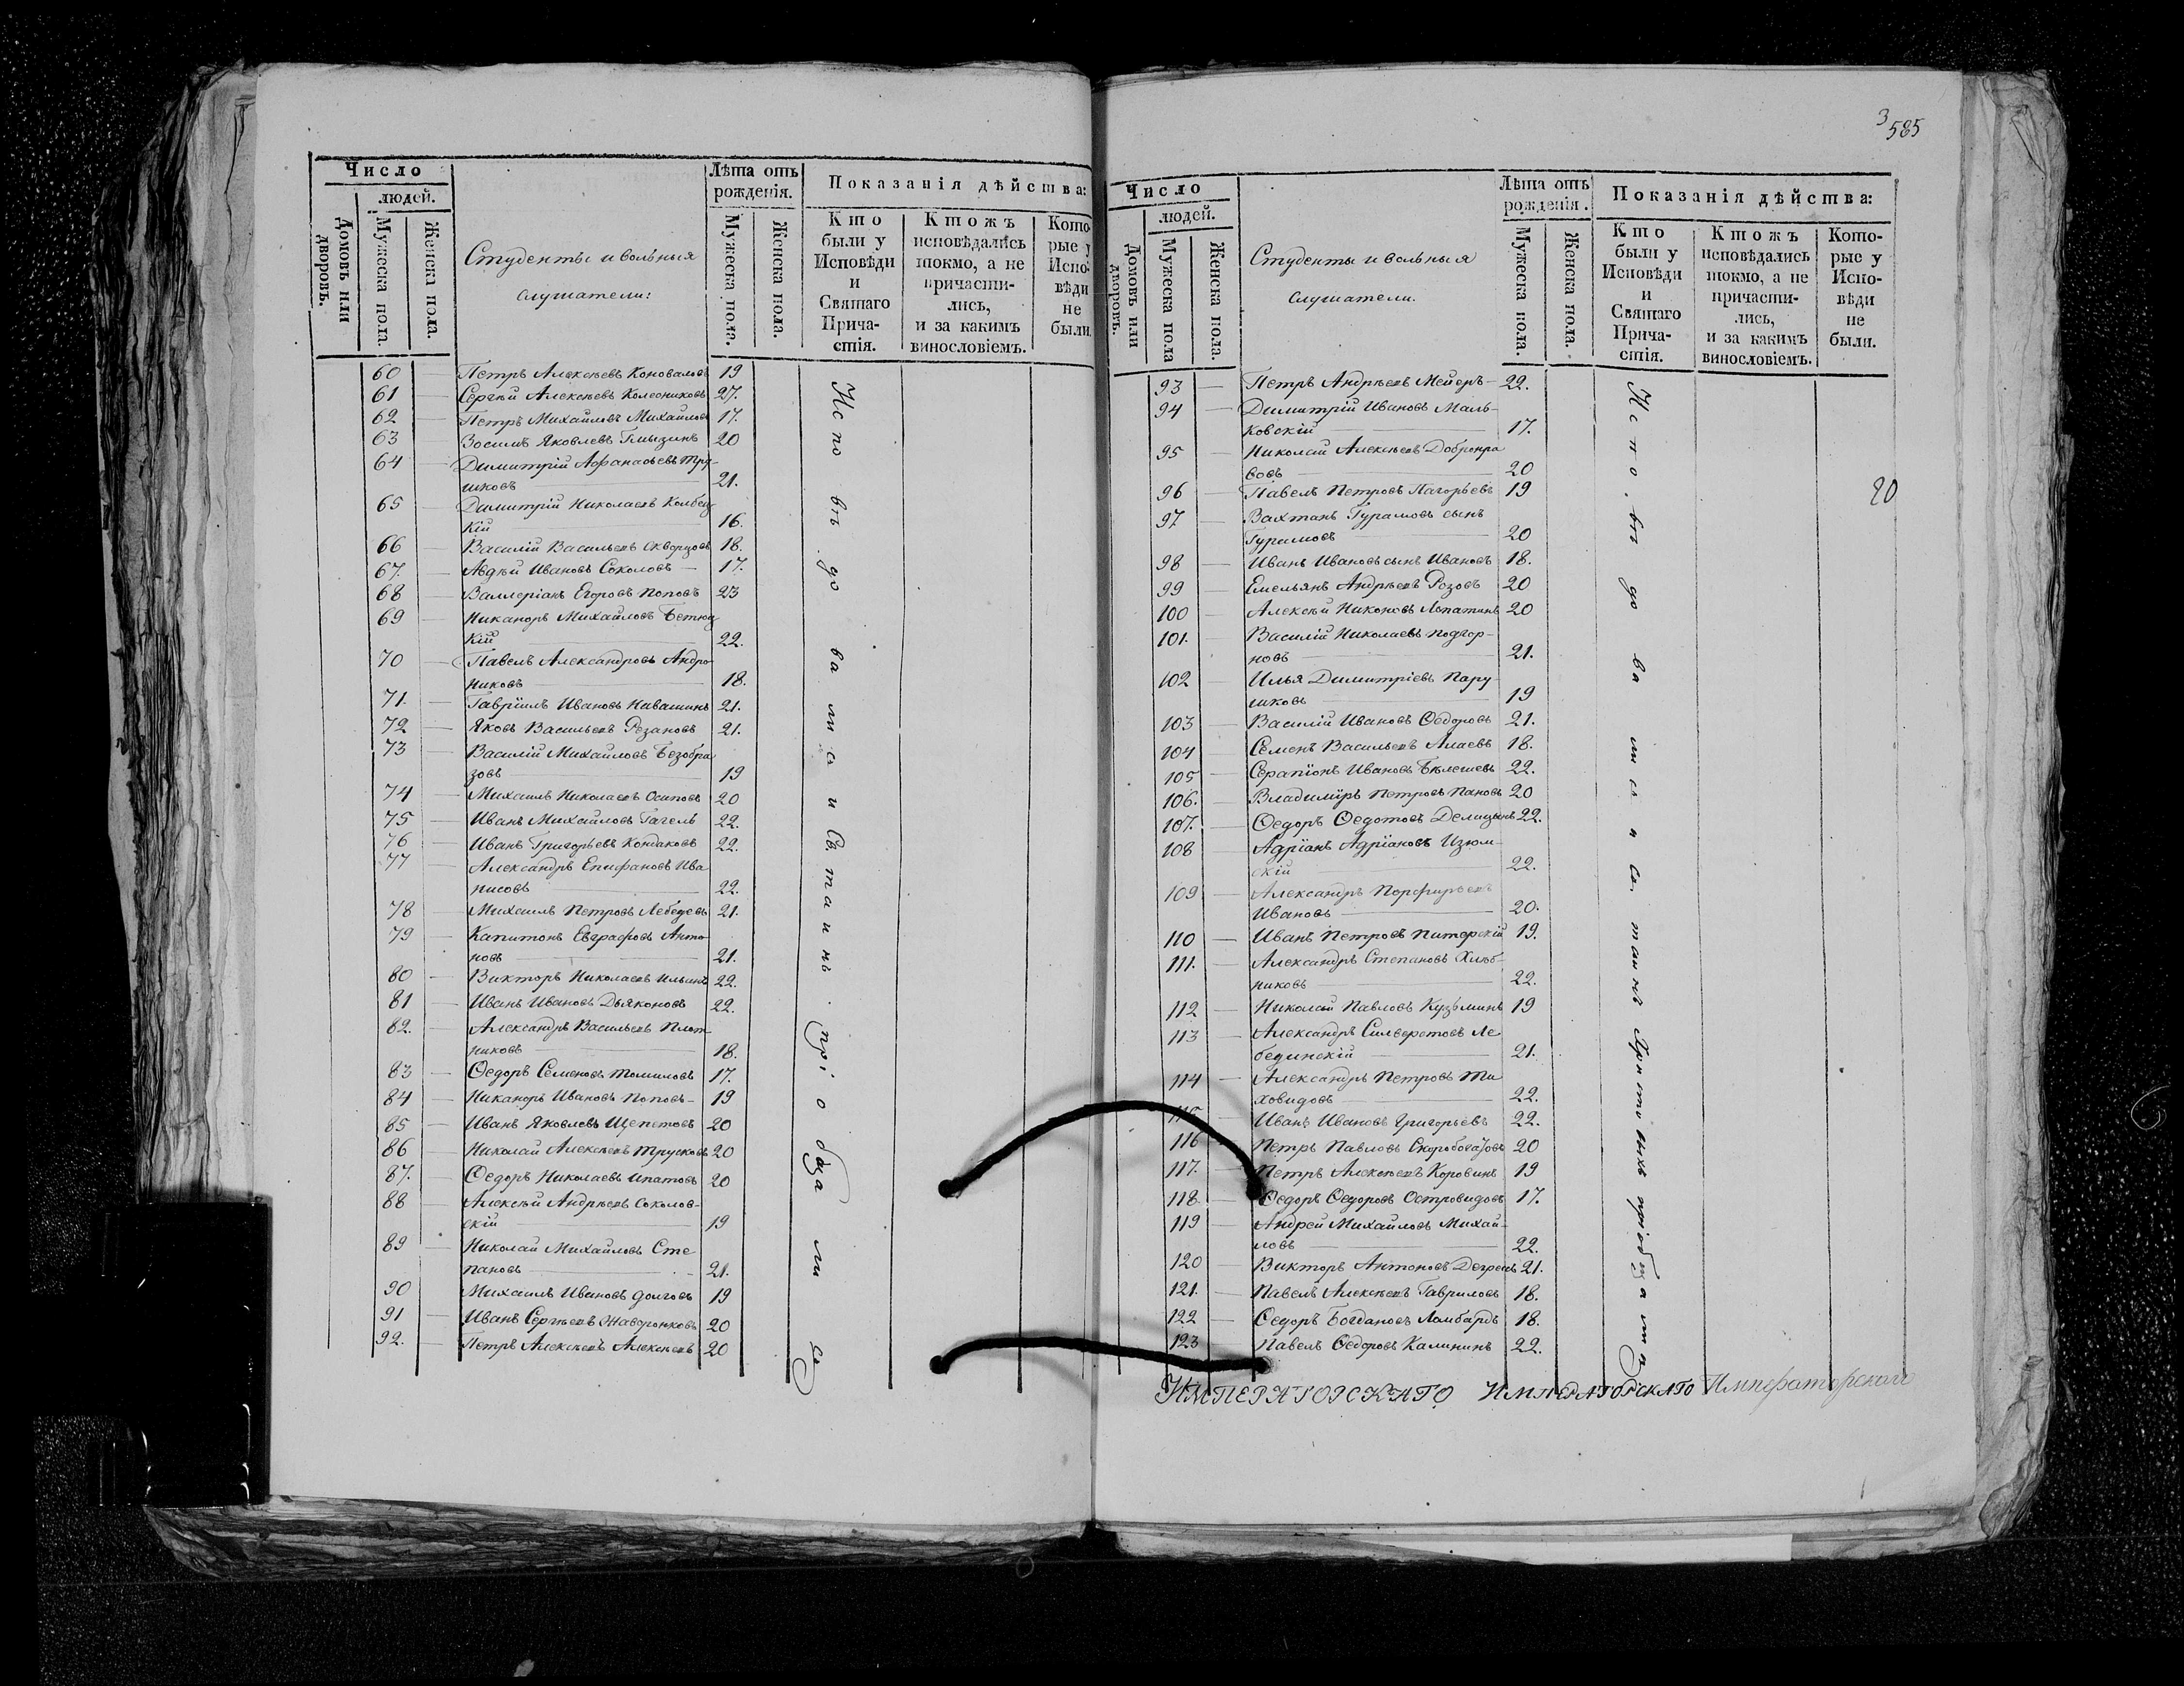 Число
людей.
Домовъ или дворовъ.
Мужеска пола.
Женска пола.
Студенты и вольныя
слушатели:
Лѣта отъ
рожденія.
Мужеска пола.
Женска пола.
Показанія дѣйства:
Кто
были у
Исповѣди
и
Святаго
Прича-
стія.
Ктожъ
исповѣдались
токмо, а не
причасти-
лись,
и за какимъ
винословіемъ.
Кото-
рые у
Испо-
вѣди
не
были.
60 — Петръ Алексѣевъ Коноваловъ 19
61 — Сергѣй Алексѣевъ Колесниковъ 27.
62 — Петръ Михайловъ Михайловъ 17.
63 — Зосимъ Яковлевъ 20
64 — Димитрій Афанасьевъ Тру-
шковъ 21.
65 — Димитрій Николаевъ
кій 16.
66 — Василій Васильевъ Скворцовъ 18.
67. — Авдѣй Ивановъ Соколовъ — 17.
68 — Валлеріанъ Егоровъ Поповъ 23
69 — Никаноръ Михайловъ
кій 22.
70 — Павелъ Александровъ Андро-
никовъ 18.
71. — Гавріилъ Ивановъ Навашинъ 21.
72 — Яковъ Васильевъ Резановъ 21.
73 — Василій Михайловъ Безобра
зовъ 19
74 — Михаилъ Николаевъ Осиповъ 20
75 — Иванъ Михайловъ Гагель 22.
76 — Иванъ Григорьевъ Кондаковъ 22.
77 — Александръ Епифановъ Ива
нисовъ 22.
78 — Михаилъ Петровъ Лебедевъ 21.
79 — Капитонъ Евграфовъ Анто
новъ 21.
80 — Викторъ Николаевъ Ильинъ 22.
81 — Иванъ Ивановъ Дьяконовъ 22.
82. — Александръ Васильевъ Плот
никовъ 18.
83 — Ѳедоръ Семеновъ Томиловъ 17.
84 — Никаноръ Ивановъ Поповъ — 19
85 — Иванъ Яковлевъ Щепетовъ 20
86 — Николай Алексѣевъ Трусковъ 20
87. — Ѳедоръ Николаевъ Ипатовъ 20
88 — Алексѣй Андрѣевъ Соколов-
скій 19
89 — Николай Михайловъ Сте
пановъ 21.
90 Михаилъ Ивановъ Долговъ 19
91 — Иванъ Сергѣевъ Жаворонковъ 20
92. — Петръ Алексѣевъ Алексѣевъ 20
Исповѣдовались и Св. Таинъ пріобщались
3
585
Число
людей.
Домовъ или дворовъ.
Мужеска пола
Женска пола.
Студенты и вольныя
слушатели.
Лѣта отъ
рожденія.
Мужеска пола.
Женска пола.
Показанія дѣйства:
Кто
были у
Исповѣди
и
Святаго
Прича-
стія.
Ктожъ
исповѣдались
токмо, а не
причасти-
лись,
и за какимъ
винословіемъ.
Кото-
рые у
Испо-
вѣди
не
были.
93 — Петръ Андрѣевъ Мейеръ — 22.
94 — Димитрій Ивановъ Маль-
ковскій 17.
95 — Николай Алексѣевъ Добронра
вовъ 20
96 — Павелъ Петровъ Пагорьевъ 19
97 — Вахтанъ Гурамовъ сынъ
Гурамовъ 20
98 — Иванъ Ивановъ сынъ Ивановъ 18.
99 — Емельянъ Андрѣевъ Розовъ 20
100 — Алексѣй Никоновъ Лопатинъ 20
101. — Василій Николаевъ Подгор-
новъ 21.
102 — Илья Димитріевъ Пару-
шковъ 19
103 — Василій Ивановъ Ѳедоровъ 21.
104 — Семенъ Васильевъ Алаевъ 18.
105 — Серапіонъ Ивановъ Беклешевъ 22.
106. — Владиміръ Петровъ Пановъ 20
107. — Ѳедоръ Ѳедотовъ Делицынъ 22.
108 Адріанъ Адріановъ Изюм-
скій 22.
109 — Александръ Порфирьевъ
Ивановъ 20.
110 — Иванъ Петровъ Питерскій 19.
111. — Александръ Степановъ Хлѣб-
никовъ 22.
112 — Николай Павловъ Кузьминъ 19
113 — Александръ Силверстовъ Ле
бединскій 21.
114 — Александръ Петровъ Ти
ховидовъ 22.
115 Иванъ Ивановъ Григорьевъ 22.
116 — Петръ Павловъ Скоробогатовъ 20
117. — Петръ Алексѣевъ Коровинъ 19
118. — Ѳедоръ Ѳедоровъ Островидовъ 17.
119 — Андрей Михайловъ Михай-
ловъ 22.
120 Викторъ Антоновъ 21.
121. — Павелъ Алексѣевъ Гавриловъ 18.
122 — Ѳедоръ Богдановъ Ломбардъ 18.
123 Павелъ Ѳедоровъ Калининъ 22.
20
ИМПЕРАТОРСКАГО ИМПЕРАТОРСКАГО Императорскаго